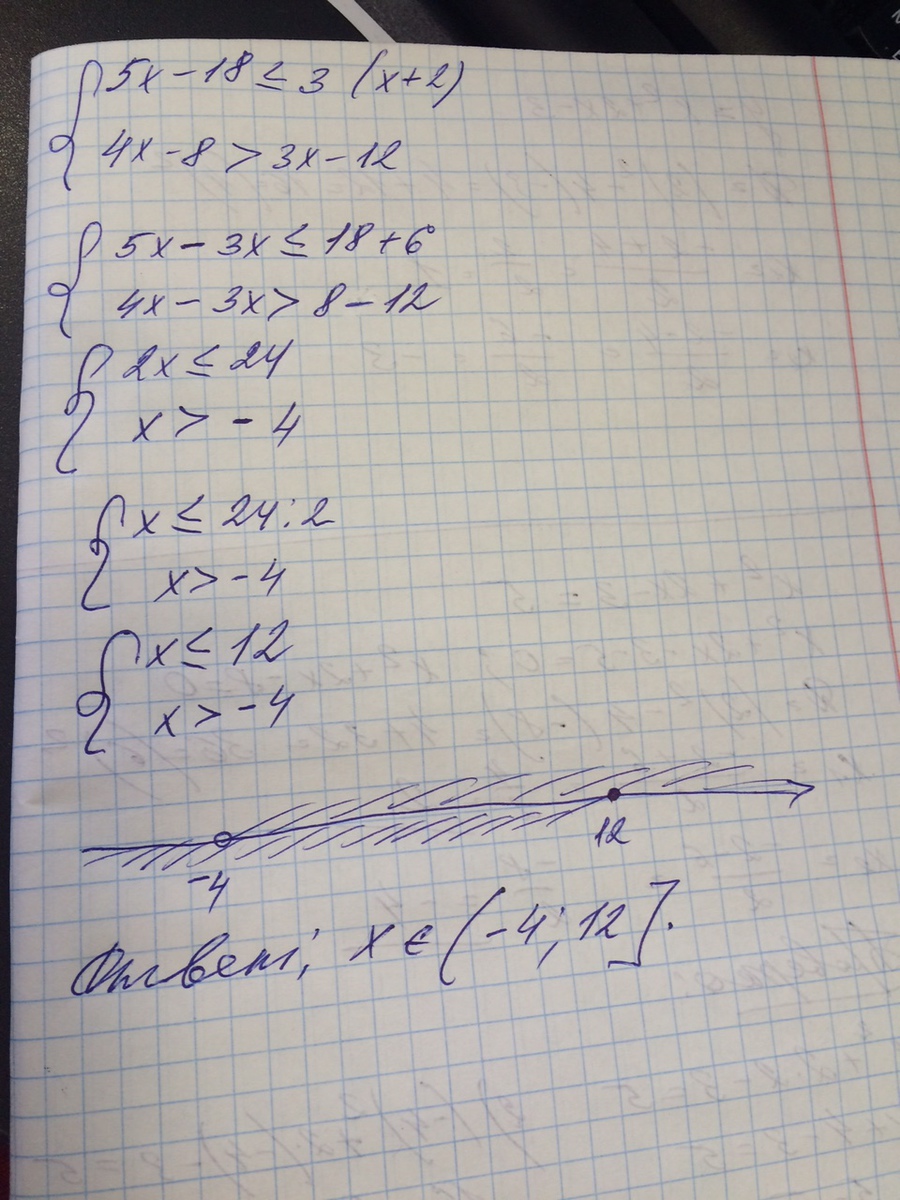 5x-18 ≤ 3 (x+2)
4x-8 > 3x-12
5x-3x ≤ 18+6
4x-3x > 8-12
2x ≤ 24
x > -4
x ≤ 24:2
x > -4
x ≤ 12
x > -4
-4 12
Ответ: x ∈ (-4; 12].